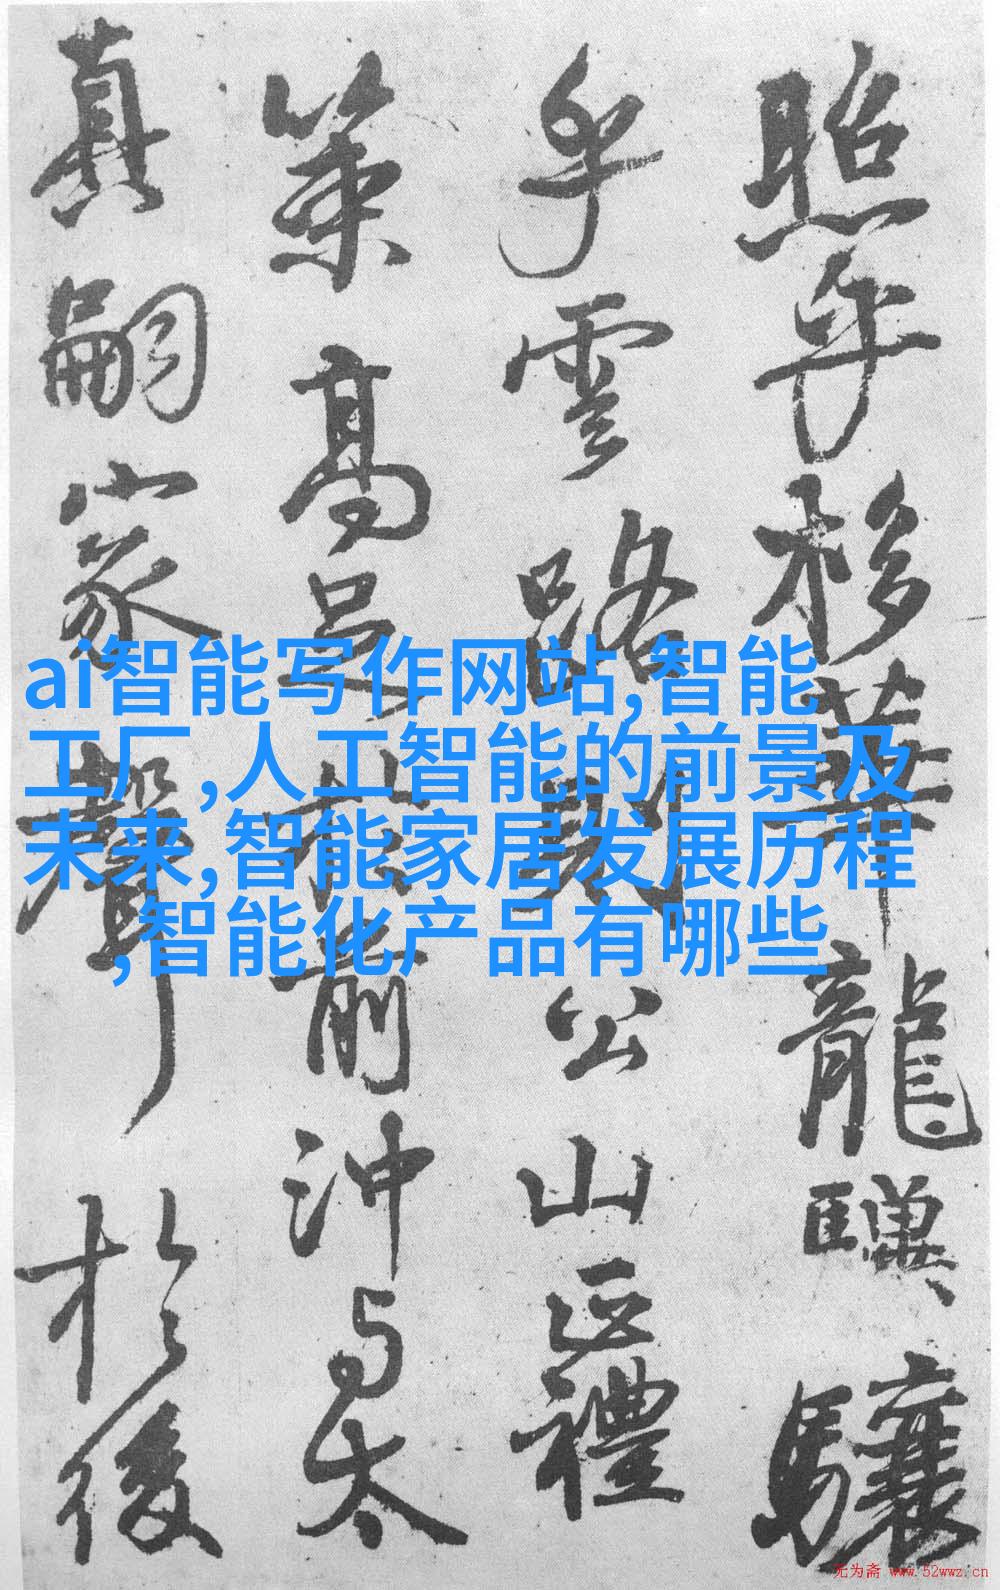 照乎移華龍驥驤
乎雲路則公山正禮
策高足於前沖与太
真嗣家聲於後
ai智能写作网站,智能
工厂,人工智能的前景及
未来,智能家居发展历程
,智能化产品有哪些,
无为斋 www.52wwz.cn